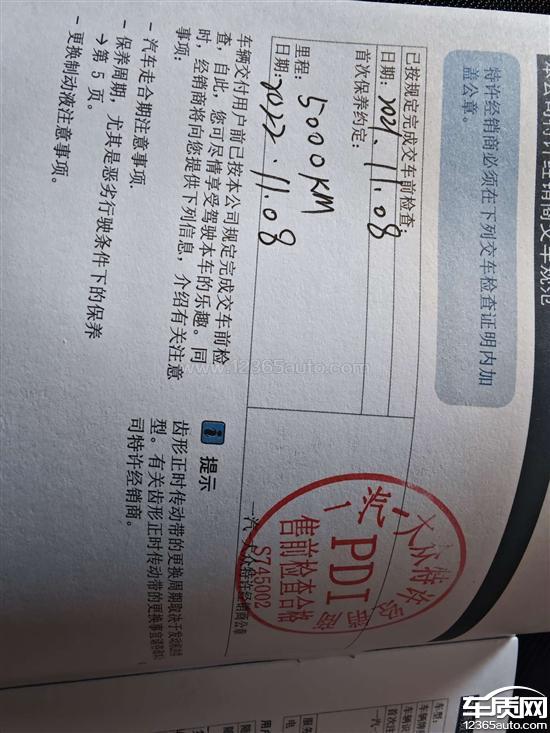 特许经销商必须在下列交车检查证明内加
盖公章。
已按规定完成交车前检查:
日期: 2021.11.08
首次保养约定:
里程: 5000KM
日期: 2022.11.08
一汽-大众特许经销商
一汽
PDI
售前检查合格
S745002
一汽-大众特许经销商公章
车辆交付用户前已按本公司规定完成交车前检
查,自此,您可尽情享受驾驶本车的乐趣。同
时,经销商将向您提供下列信息,介绍有关注意
事项:
- 汽车走合期注意事项.
- 保养周期,尤其是恶劣行驶条件下的保养
→第 5 页。
- 更换制动液注意事项。
i 提示
齿形正时传动带的更换周期取决于发动机类
型。有关齿形正时传动带的更换事宜请咨询本公
司特许经销商。
车型:
首次注
服务
电
用户
www.12365auto.com
车质网
12365auto.com